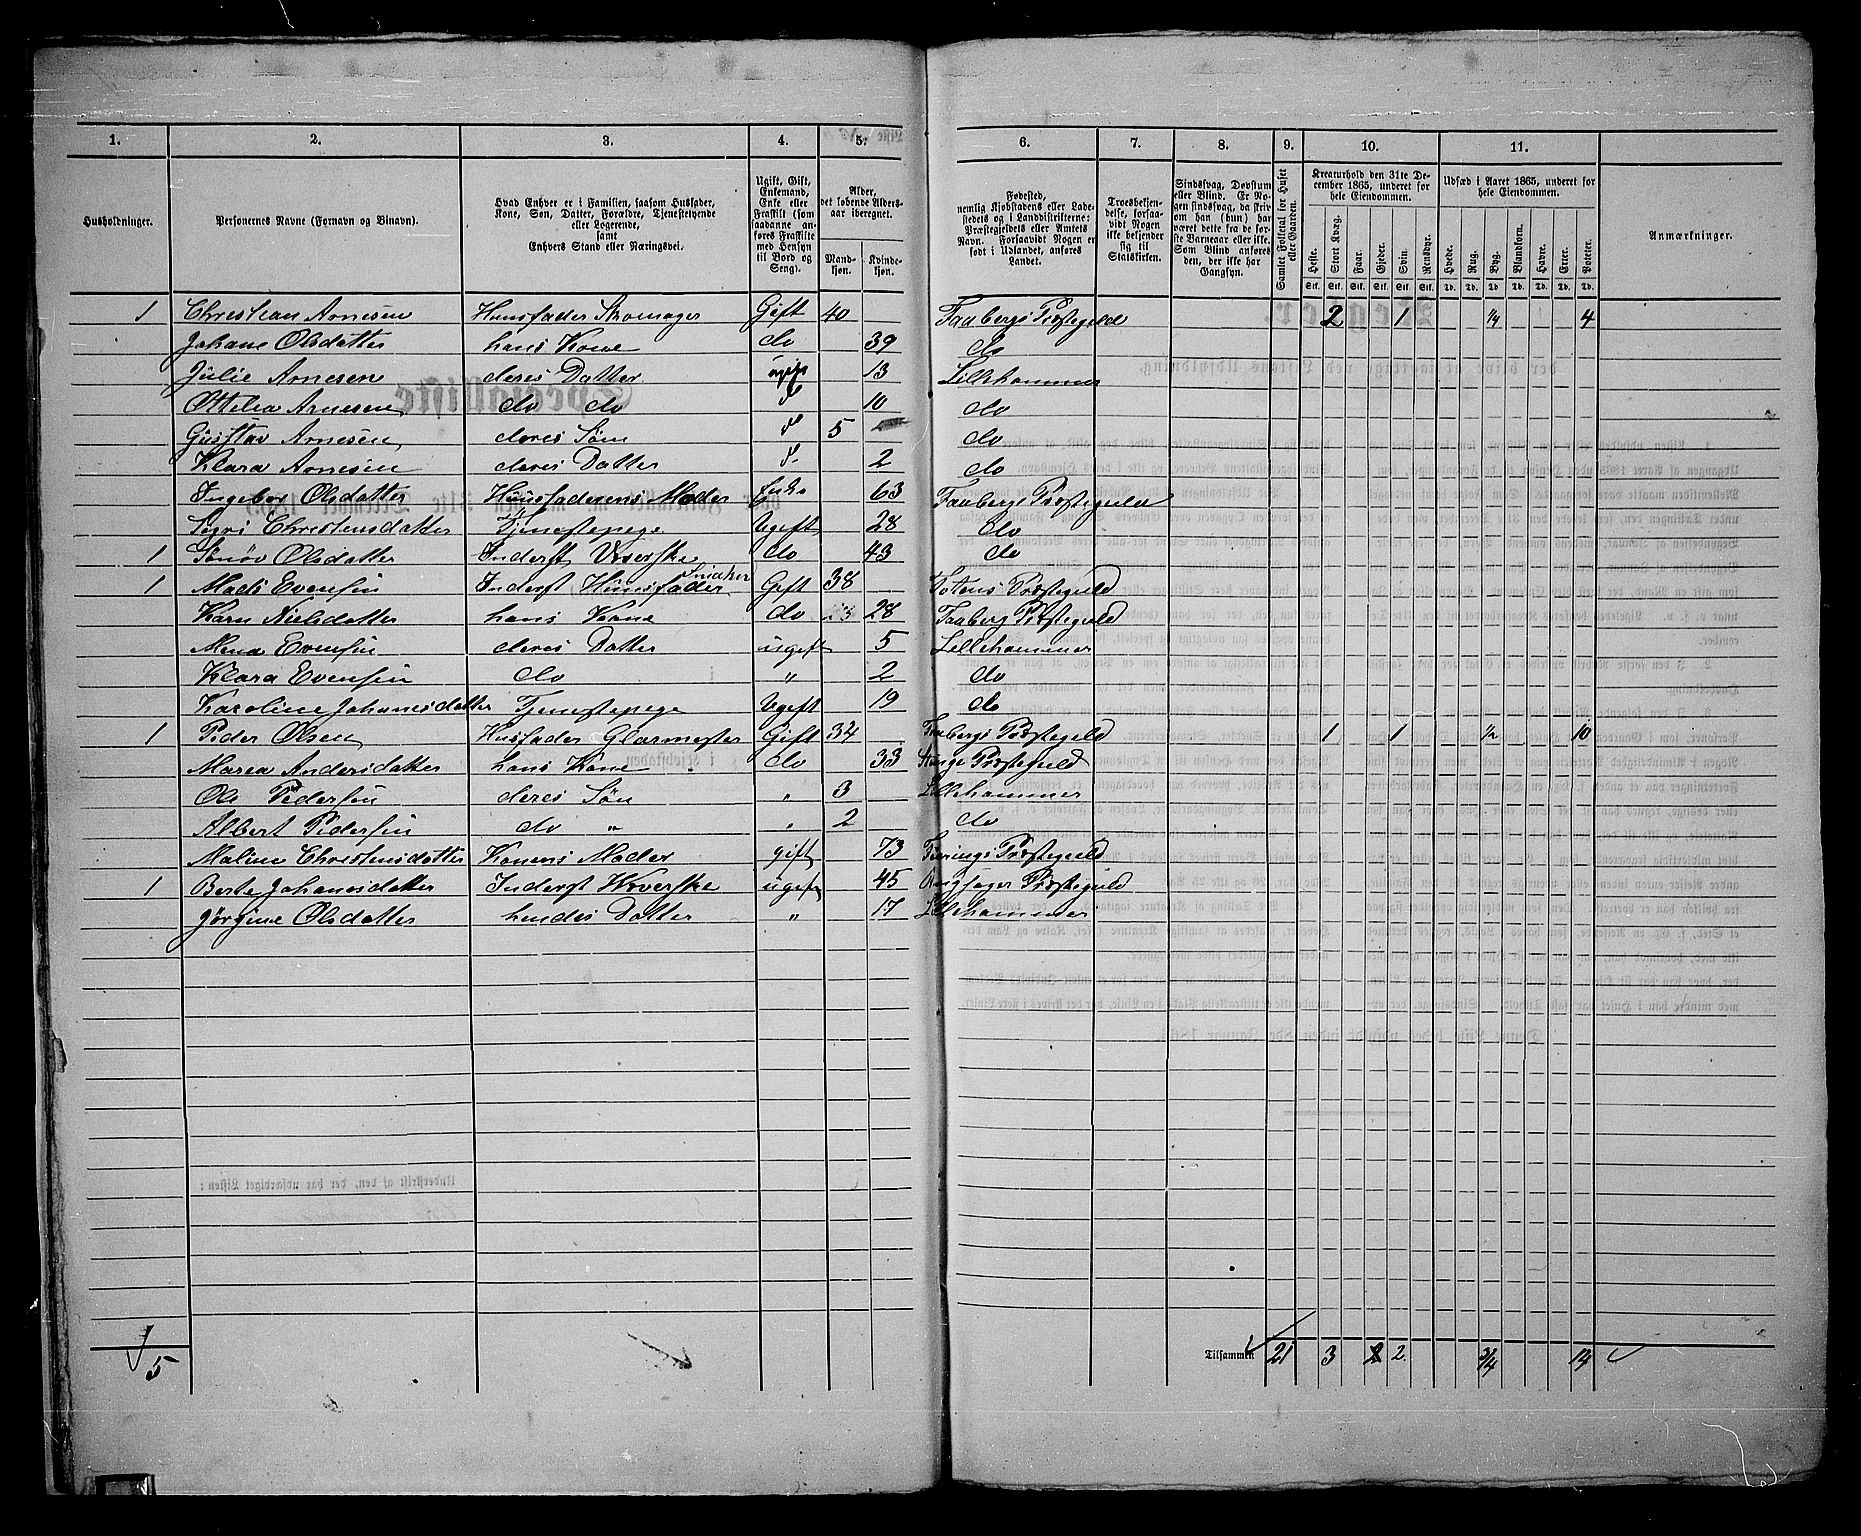 1. 2. 3. 4. 5. 6. 7. 8. 9. 10. 11.
Husholdninger.
Personernes Navne (Fornavn og Binavn).
Hvad Enhver er i Familien, saasom Husfader,
Kone, Søn, Datter, Forældre, Tjenestetyende
eller Logerende,
samt
Enhvers Stand eller Næringsvei.
Ugift, Gift,
Enkemand,
Enke eller
Fraskilt (som
saadanne an-
føres Fraskilte
med Hensyn
til Bord og
Seng).
Alder,
det løbende Alders-
aar iberegnet.
Mand-
kjøn.
Kvinde-
kjøn.
Fødested,
nemlig Kjøbstadens eller Lade-
stedets og i Landdistrikterne:
Præstegjeldets eller Amtets
Navn. Forsaavidt Nogen er
født i Udlandet, anføres
Landet.
Troesbekjen-
delse, forsaa-
vidt Nogen
ikke bekjender
sig til
Statskirken.
Sindssvag, Døvstum
eller Blind. Er No-
gen sindssvag, da skriv
om han (hun) har
været dette fra de før-
ste Barneaar eller ikke.
Som Blind anføres
den, der ikke har
Gangsyn.
Samlet Folketal for Huset
eller Gaarden.
Kreaturhold den 31te De-
cember 1865, underet for
hele Eiendommen.
Heste. Stort Kvæg. Faar. Gjeder. Svin. Rensdyr.
Stk. Stk. Stk. Stk. Stk. Stk.
Udsæd i Aaret 1865, underet for
hele Eiendommen.
Hvede. Rug. Byg. Blandkorn. Havre. Erter. Poteter.
Td. Td. Td. Td. Td. Td. Td.
Anmærkninger.
1 Christian Arnesen Huusfader Skomager Gift 40 Faabergs Præstegield 2 1 1/4 4
Johane Olsdatter hans Kone do 39 do
Julie Arnesen deres Datter ugift 13 Lillehammer
Ottilia Arnesen do do 10 do
Gusstav Arnesen deres Søn 5 do
Klara Arnesen deres Datter 2 do
Ingebor Olsdatter Huusfaderens Moder Enke 63 Faabergs Præstegield
Christensdatter Tjenestepege Ugift 28 do
1 Olsdatter Inderst do 43 do
1 Mads Evensen Inderst Huusfader Gift 38 Totens Præstegield
Karn Nielsdatter hans Kone do 28 Faaberg Præstegield
Mena Evensen deres Datter ugift 5 Lillehammer
Klara Evensen do " 2 do
Karoline Johanisdatter Tjenestepege Ugift 19 do
1 Peder Olsen Husfader Glarmester Gift 34 Faabergs Præstegield 1 1 1/2 10
Marea Andersdatter hans Kone do 33 Præstegield
Ole Pedersen deres Søn " 3 Lillehammer
Albert Pedersen do " " 2 do
Maline Christensdatter Konens Moder gift 73 Præstegield
1 Berte Johansdatter Inderst ugift 45 Ringsager Præstegield
Jørgine Olsdatter hendes Datter " 17 Lillehammer
5
Tilsammen 21 3 2 3/4 14